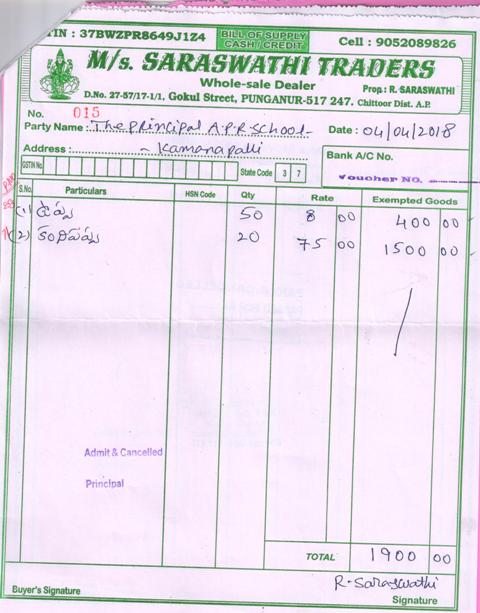 TIN : 37BWZPR8649J1Z4
BILL OF SUPPLY
CASH / CREDIT
Cell : 9052089826
M/s. SARASWATHI TRADERS
Whole-sale Dealer
Prop : R. SARASWATHI
D.No. 27-57/17-1/1, Gokul Street, PUNGANUR-517 247. Chittoor Dist. A.P.
No. 015
Party Name : The Principal A.P.R School
Date : 04/04/2018
Address : Kamanapalli
Bank A/C No.
GSTIN No. State Code 3 7
Voucher NO.
S.No. Particulars HSN Code Qty Rate Exempted Goods
(1) ఉప్పు 50 8 00 400 00
(2) కందిపప్పు 20 75 00 1500 00
Admit & Cancelled
Principal
TOTAL 1900 00
R. Saraswathi
Buyer's Signature Signature